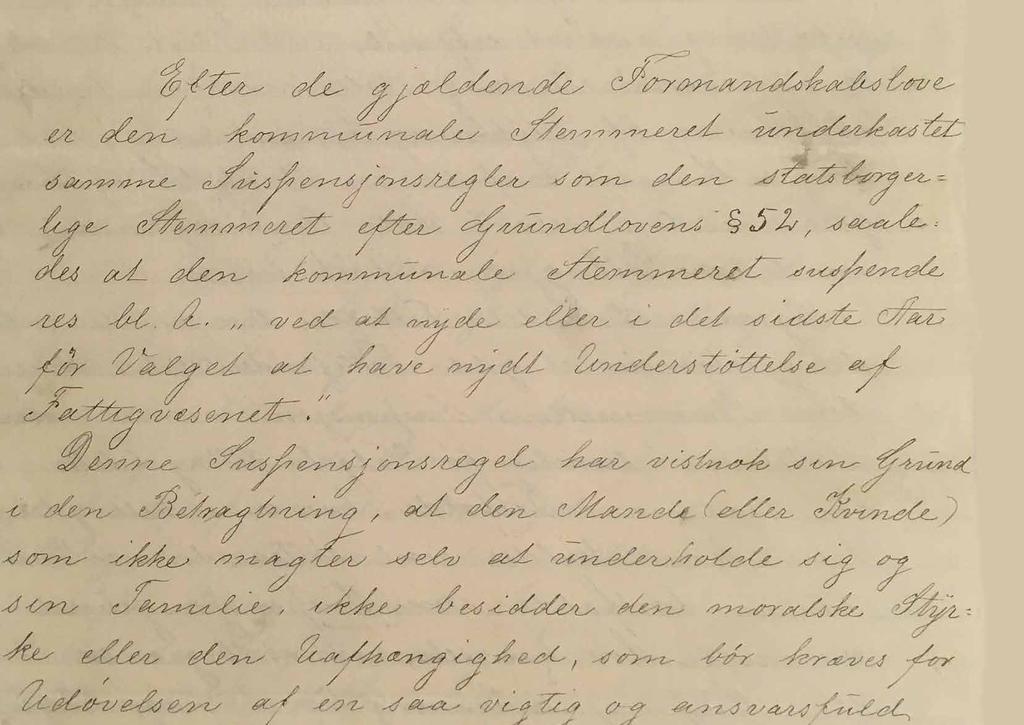 Efter de gjældende Formandskabslove
er den kommunale Stemmeret underkastet
samme Suspensjonsregler som den statsborger=
lige Stemmeret efter Grundlovens § 52, saale=
des at den kommunale Stemmeret suspende
res bl. A. „ ved at nyde eller i det sidste Aar
för Valget at have nydt Understöttelse af
Fattigvæsenet."
Denne Suspensjonsregel har vistnok sin Grund
i den Betragtning, at den Mand (eller Kvinde)
som ikke magter selv at underholde sig og
sin Familie, ikke besidder den moralske Styr=
ke eller den Uafhængighed, som bör kræves for
Udövelsen af en saa vigtig og ansvarsfuld